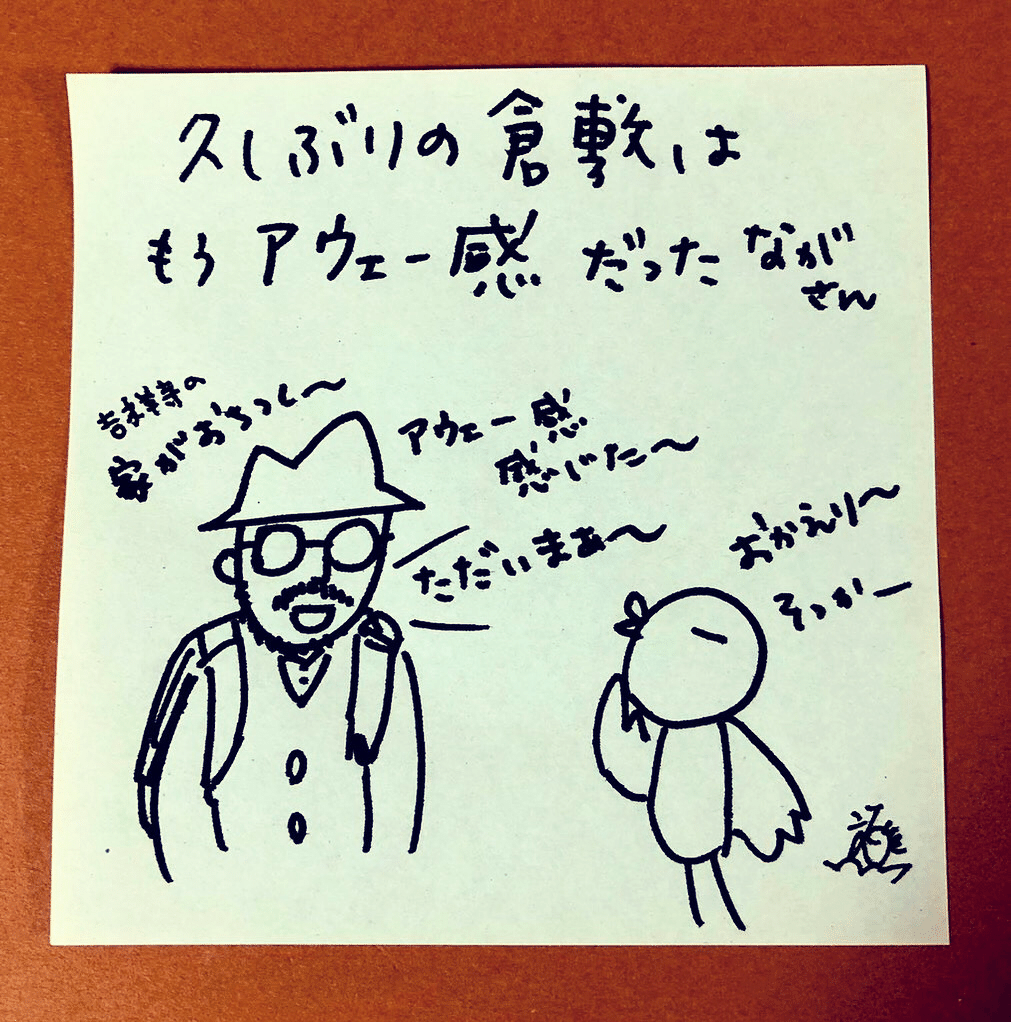 久しぶりの倉敷は
もうアウェー感だったなが
さん
吉祥寺の
家がおちつく〜
アウェー感
感じた〜
ただいまぁ〜
おかえり〜
そっかー